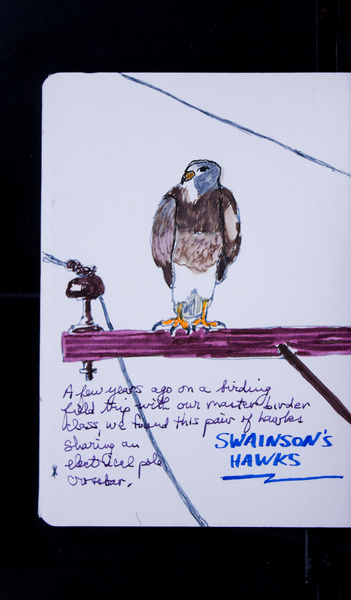 A few years ago on a birding
field trip with our master birder
class, we found this pair of hawks
sharing an
electrical pole
crossbar.
SWAINSON'S
HAWKS